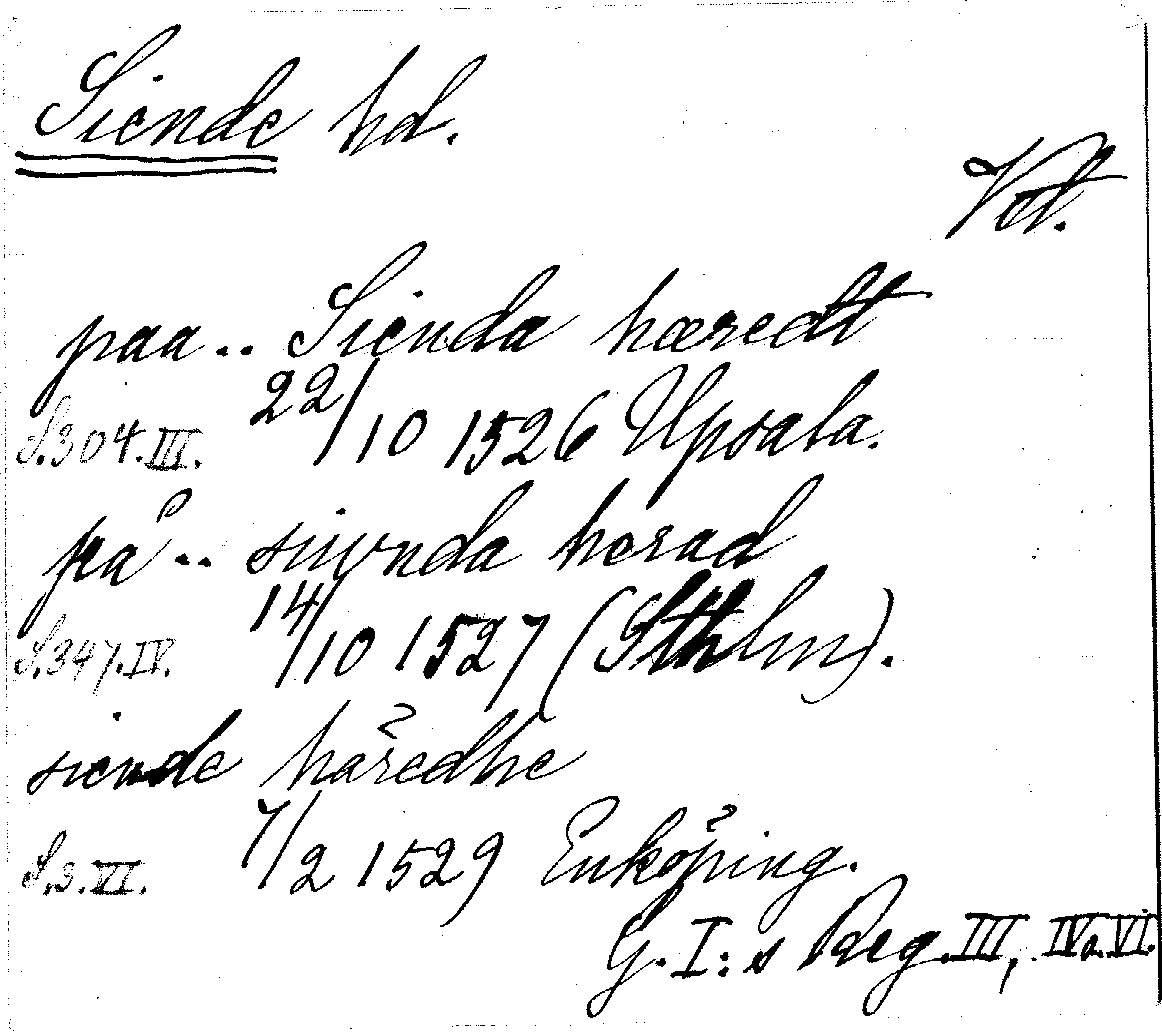 Siende hd.
Vstl.
paa.. Sienda hæredt
S.304.III. 22/10 1526 Upsala.
på.. siunda herad
S.347.IV. 14/10 1527 (Sthlm).
siende häredhe
S.3.VI. 7/2 1529 Enköping.
G. I:s Reg. III, IV o. VI.